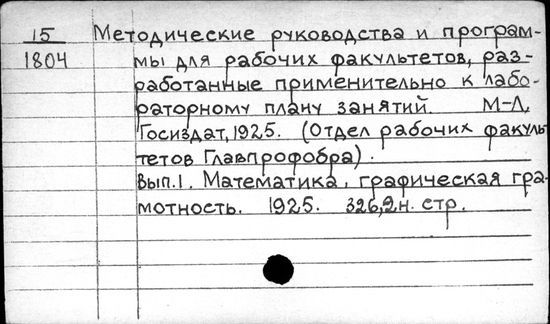 15 Методические руководства и програм-
1804 мы для рабочих факультетов, раз-
работанные применительно к лабо-
раторному плану занятий. М-Л,
Госиздат, 1925. (Отдел рабочих факуль
тетов Главпрофобра).
Вып.1. Математика, графическая гра-
мотность. 1925. 326,2н. стр.